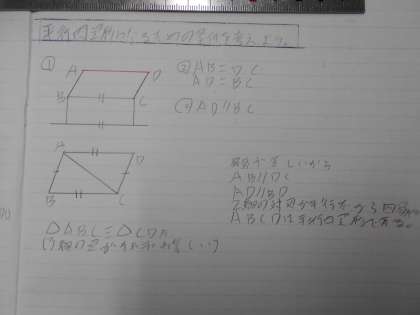 平行四辺形になるための条件を考えよう。
①
A D
B C
② AB=DC
AD=BC
③ AD∥BC
A D
B C
△ABC≡△CDA
(3組の辺がそれぞれ等しい)
等しいから
AB∥DC
AD∥BD
2組の対辺が平行だから四角形
ABCDは平行四辺形である。